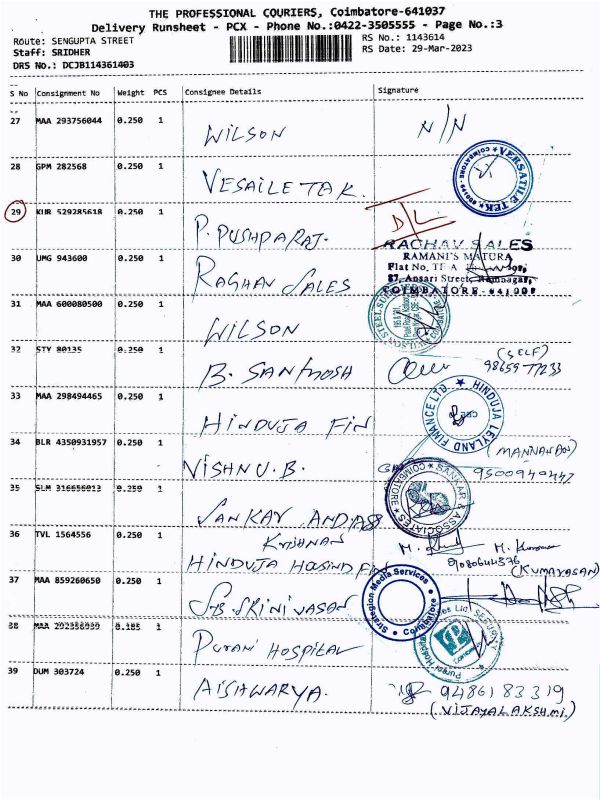 THE PROFESSIONAL COURIERS, Coimbatore-641037
Delivery Runsheet - PCX - Phone No.:0422-3505555 - Page No.:3
Route: SENGUPTA STREET RS No.: 1143614
Staff: SRIDHER RS Date: 29-Mar-2023
DRS No.: DCJB114361403
S No Consignment No Weight PCS Consignee Details Signature
27 MAA 293756044 0.250 1 WILSON N/N
28 GPM 282568 0.250 1 VESAILE TAK.
VERSATILE TEK COIMBATORE
29 KUR 529285618 0.250 1 P. PUSHPARAJ. D/L
30 UMG 943600 0.250 1 RAGHAV SALES
RAGHAV SALES
RAMANI'S MATURA
Flat No.
87, Ansari Street, Ramnagar,
COIMBATORE - 641009
31 MAA 600080500 0.250 1 WILSON
32 STY 80135 0.250 1 B. SANTHOSH (SELF)
98659 77233
33 MAA 298494465 0.250 1 HINDUJA FIN
HINDUJA LEYLAND FINANCE LTD
34 BLR 4350931957 0.250 1 VISHNU. B.
9500940447
35 SLM 316656013 0.250 1 SANKAR AND ASS
SANKAR & ASSOCIATES COIMBATORE
36 TVL 1564556 0.250 1 KRISHNAN
HINDUJA HOUSIND FIN
M. Kumaran
9080644376
(KUMARASAN)
37 MAA 859260650 0.250 1 SRINIVASAN
Strategion Media Services Coimbatore
38 0.185 1 PURANI HOSPITAL
39 DUM 303724 0.250 1 AISHWARYA. 9486183319
(VIJAYALAKSHMI.)